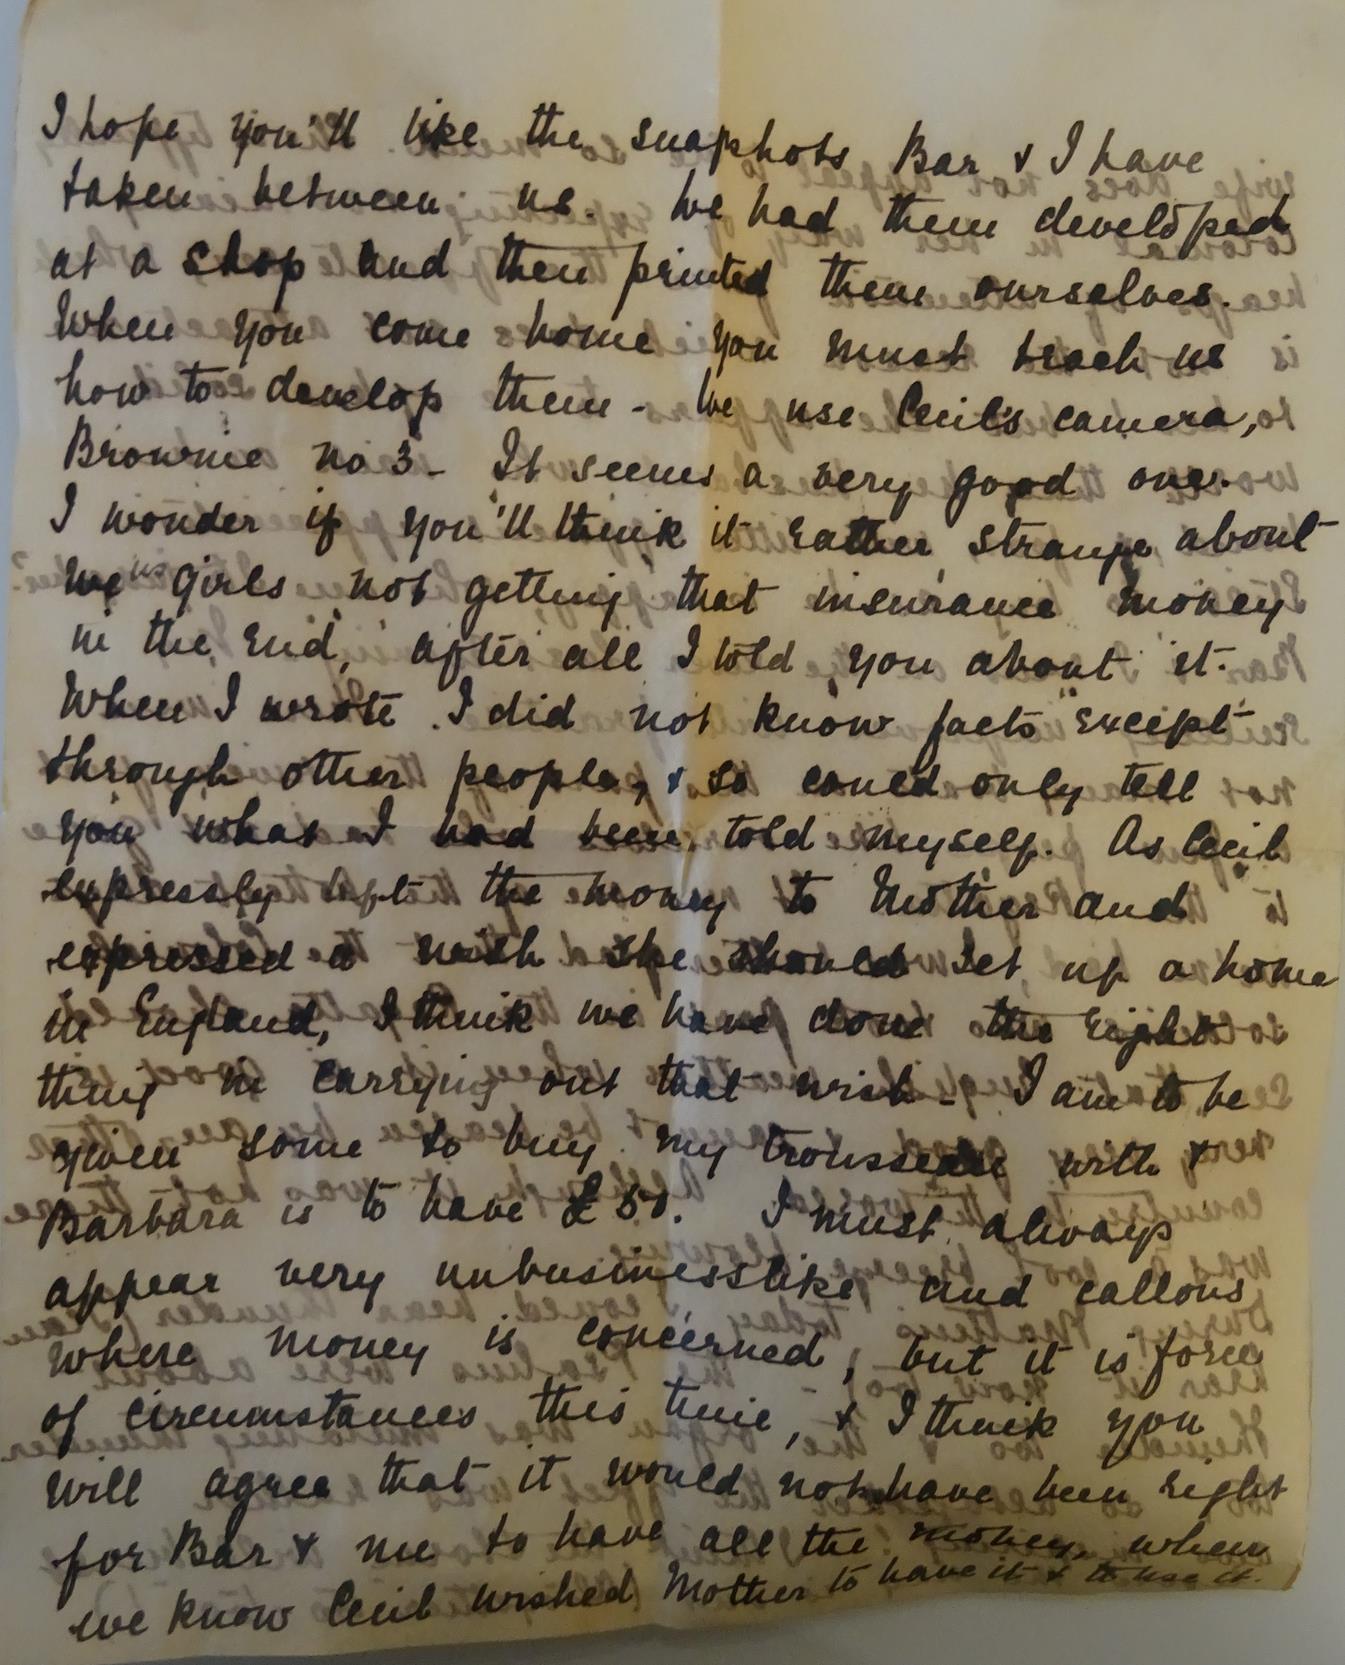 I hope you'll like the snaphots Bar & I have
taken between us. We had them developed
at a shop and then printed them ourselves.
When you come home you must teach us
how to develop them - We use Cecil's camera,
Brownie no 3 - It seems a very good one.
I wonder if you'll think it rather strange about
we us girls not getting that insurance money
in the end, after all I told you about it.
When I wrote I did not know facts except
through other people, & so could only tell
you what I had been told myself. As Cecil
expressly left the money to Mother and
expressed a wish she should set up a home
in England, I think we have done the right
thing in carrying out that wish - I am to be
given some to buy my trousseau with &
Barbara is to have £50. I must always
appear very unbusinesslike and callous
where money is concerned, but it is force
of circumstances this time, & I think you
will agree that it would not have been right
for Bar & me to have all the money, when
we know Cecil wished Mother to have it & to use it.